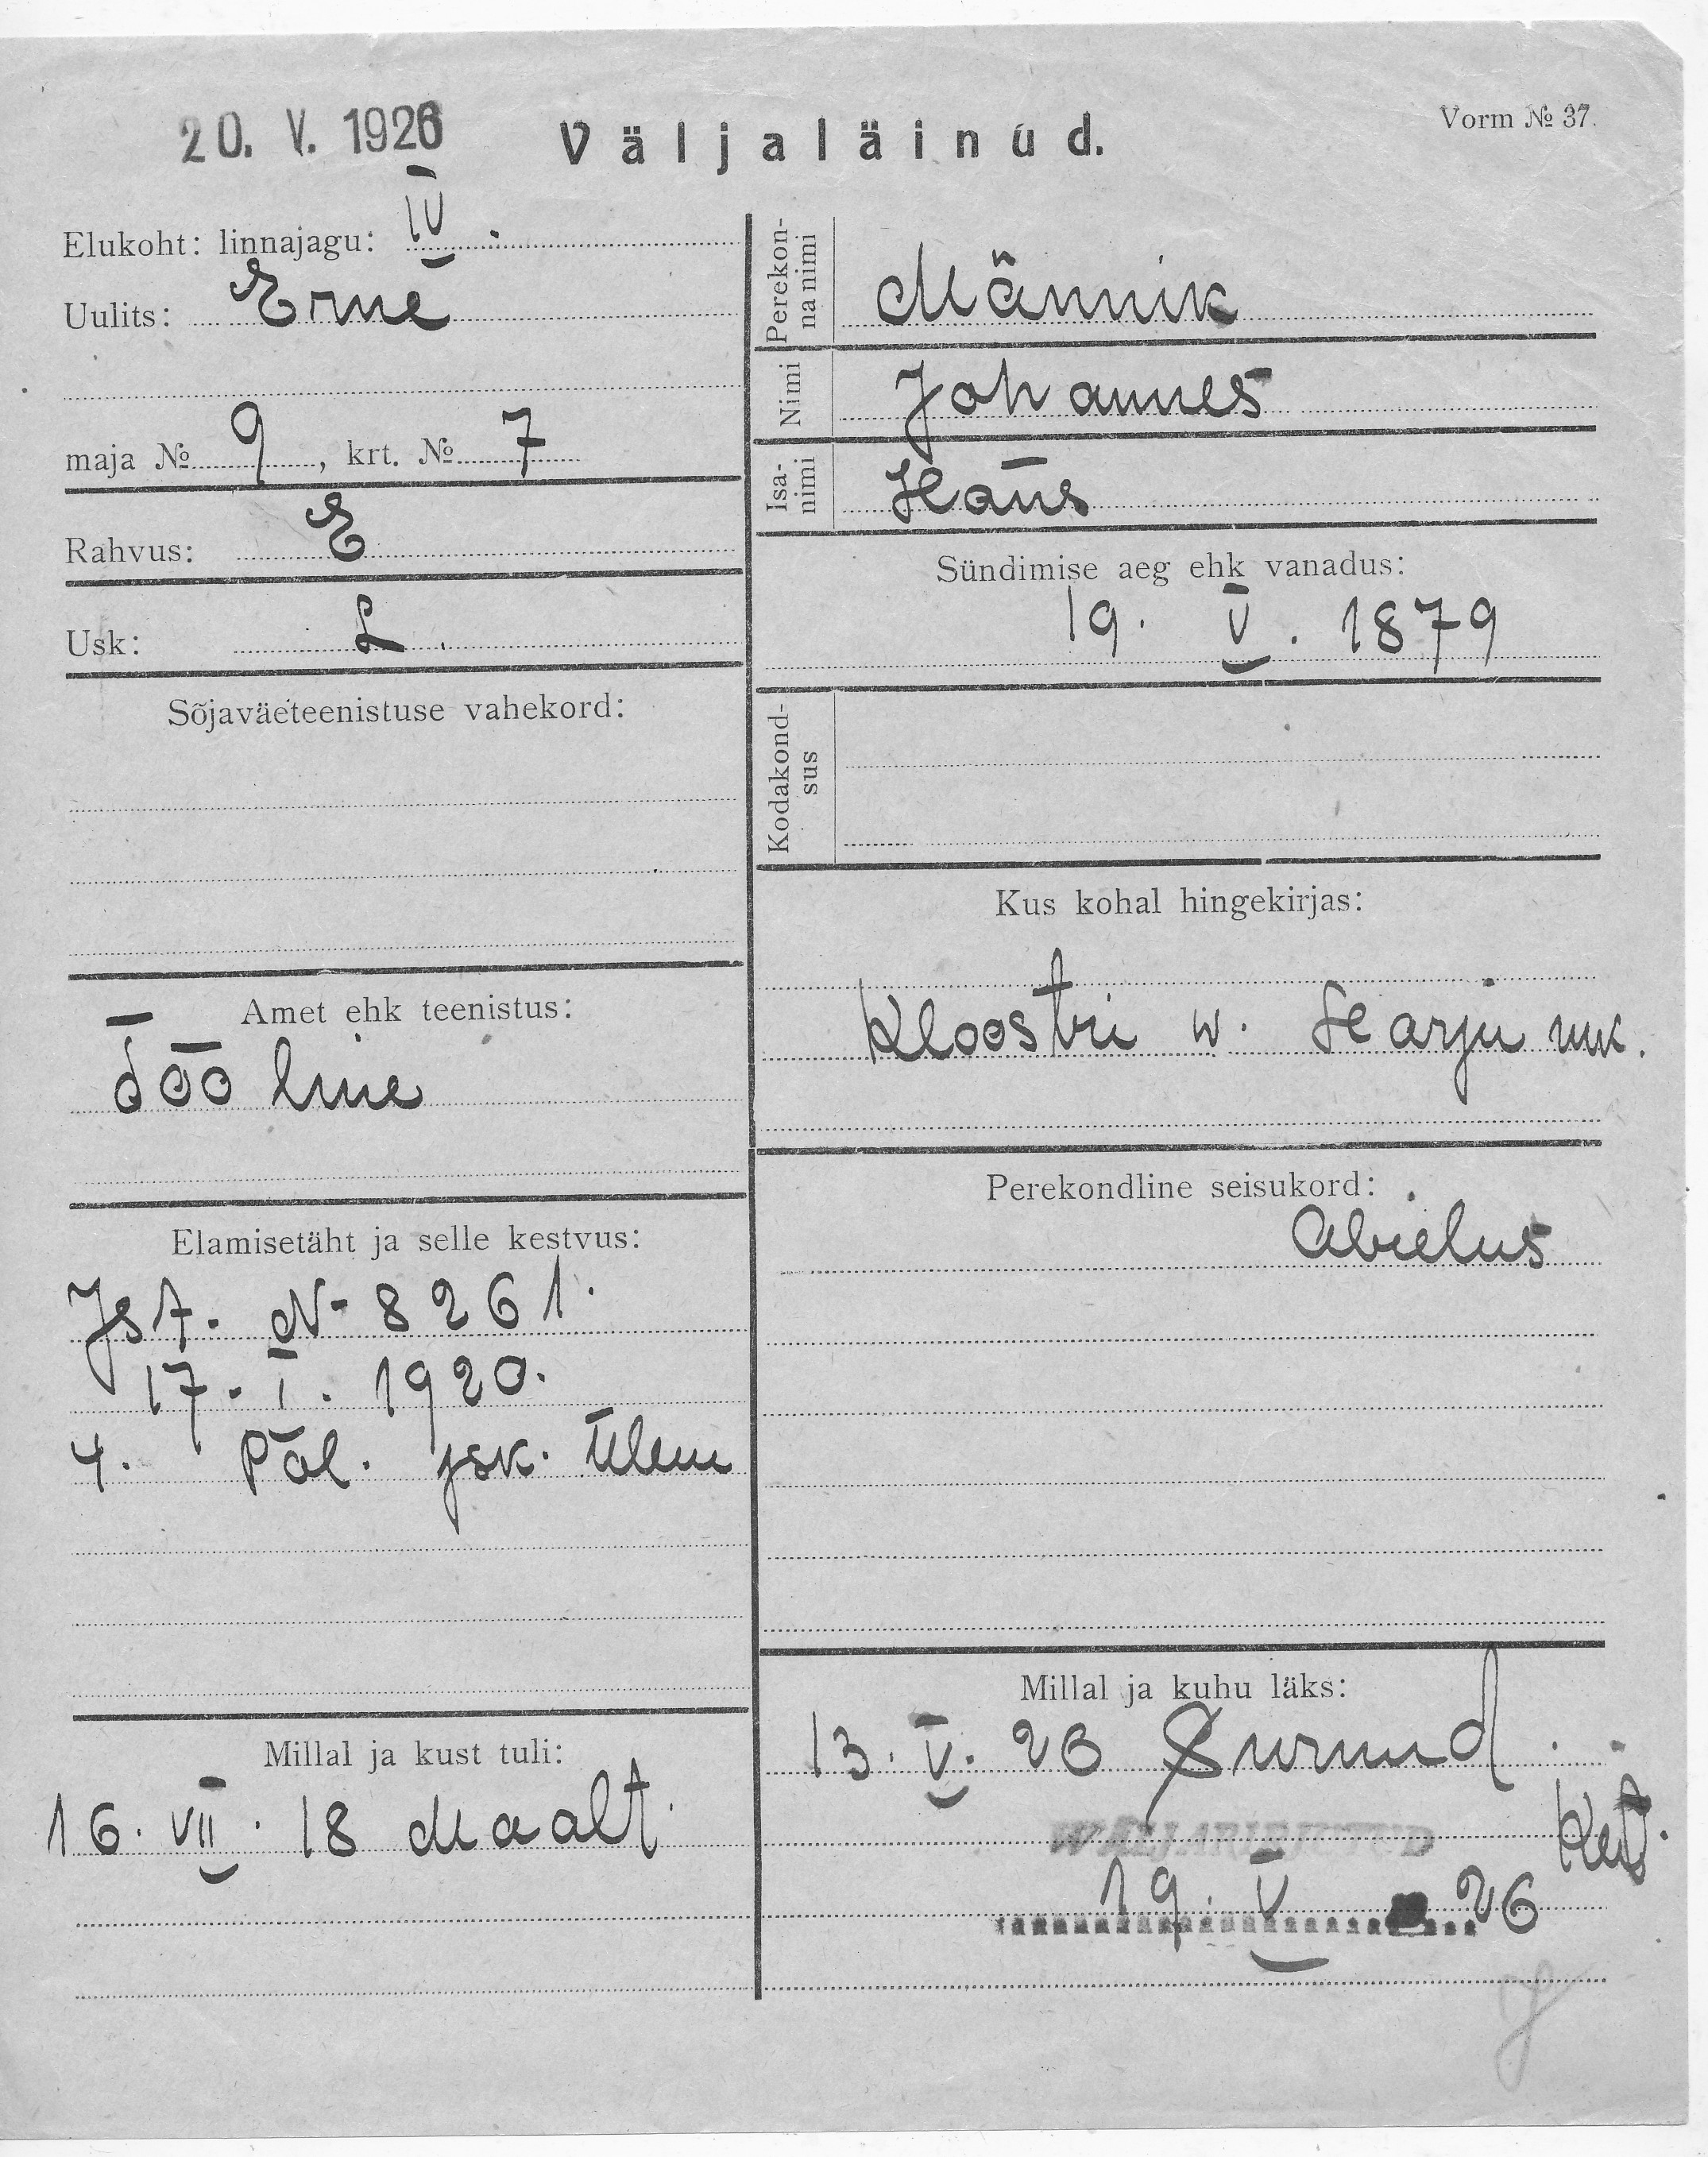 20. V. 1926
Väljaläinud.
Vorm № 37.
Elukoht: linnajagu: IV.
Uulits: Erne
maja № 9, krt. № 7
Rahvus: E
Usk: L.
Sõjaväeteenistuse vahekord:
Amet ehk teenistus:
tööline
Elamisetäht ja selle kestvus:
Ist. N- 8261.
17. I. 1920.
4. Pol. jsk. ülem
Millal ja kust tuli:
16. VII. 18 Maalt.
Perekon-
na nimi
Männik
Nimi Johannes
Isa-
nimi
Hans
Sündimise aeg ehk vanadus:
19. V. 1879
Kodakond-
sus
Kus kohal hingekirjas:
Kloostri w. Harju mk.
Perekondline seisukord:
Abielus
Millal ja kuhu läks:
13. V. 26 Surnud.
19. V 26